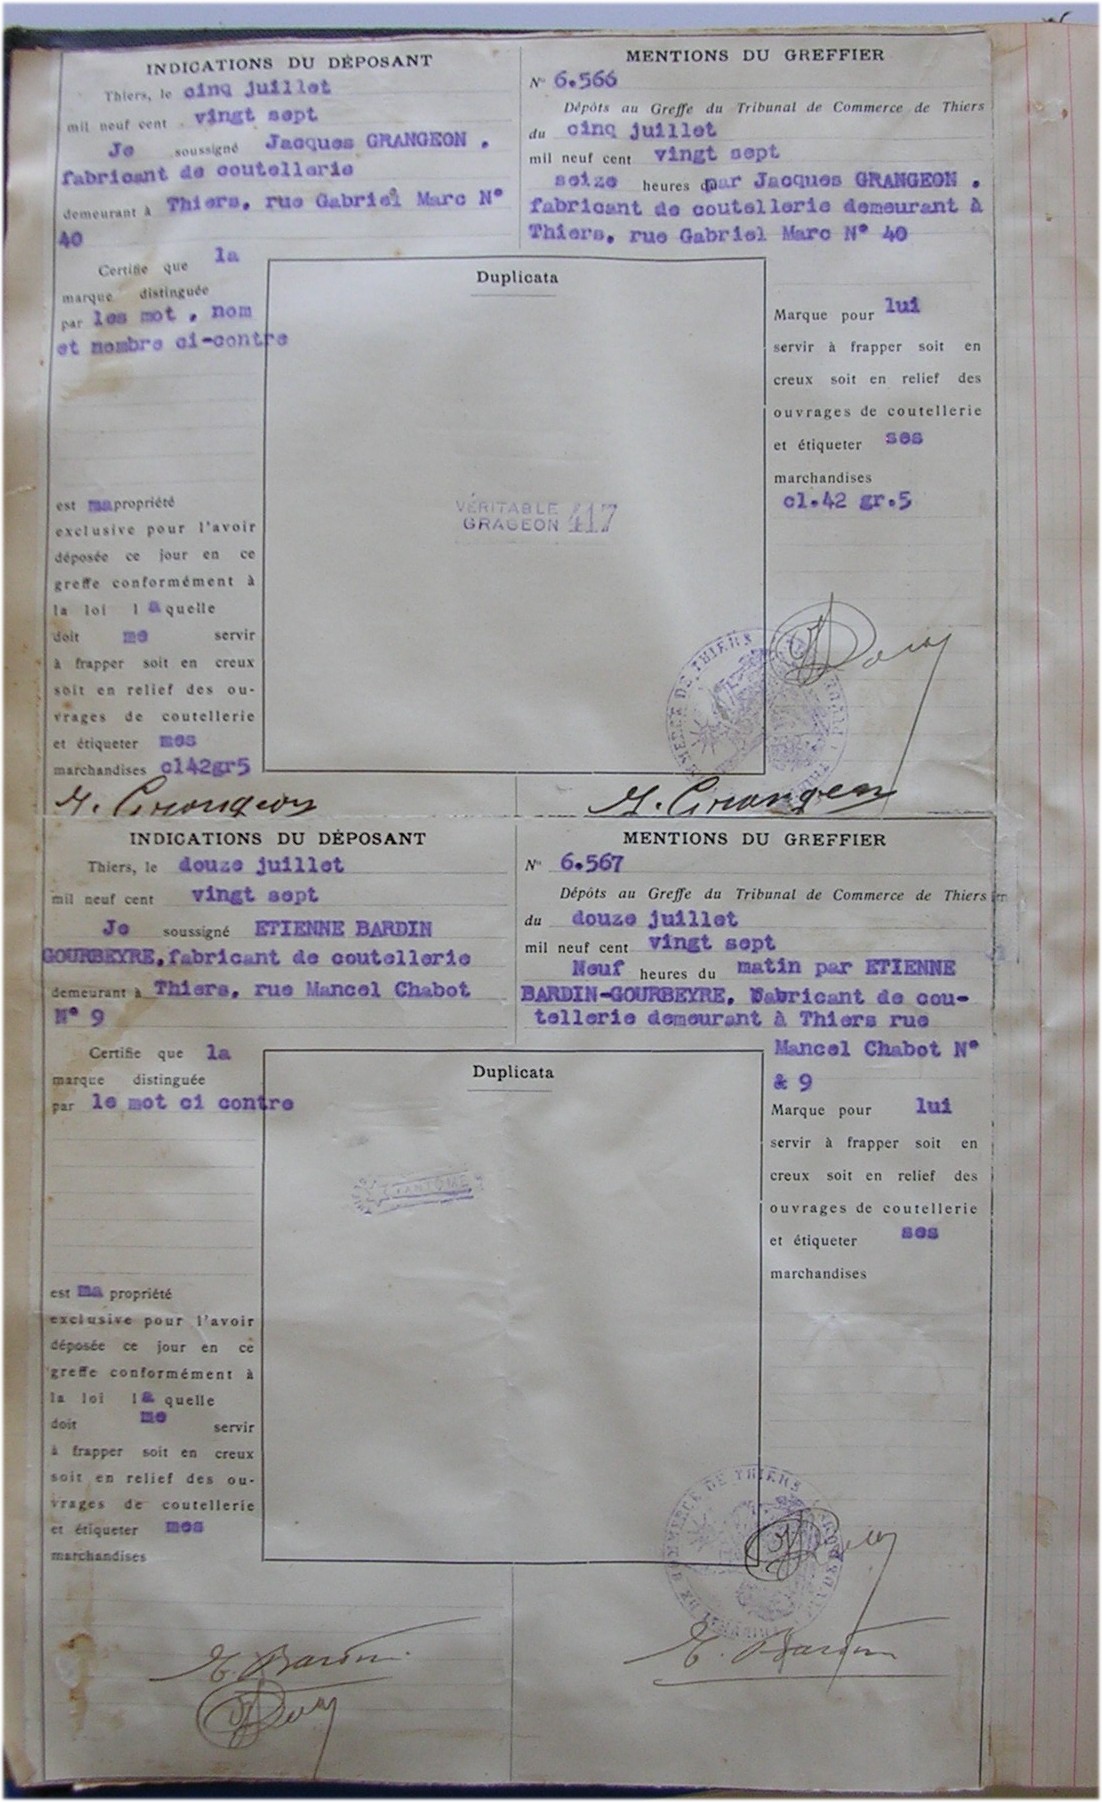 INDICATIONS DU DÉPOSANT
Thiers, le cinq juillet
mil neuf cent vingt sept
Je soussigné Jacques GRANGEON .
fabricant de coutellerie
demeurant à Thiers, rue Gabriel Marc N°
40
Certifie que la
marque distinguée
par les mot , nom
et nombre ci-contre
est ma propriété
exclusive pour l'avoir
déposée ce jour en ce
greffe conformément à
la loi laquelle
doit me servir
à frapper soit en creux
soit en relief des ou-
vrages de coutellerie
et étiqueter mes
marchandises cl42gr5
Duplicata
VÉRITABLE
GRAGEON 417
MENTIONS DU GREFFIER
N° 6.566
Dépôts au Greffe du Tribunal de Commerce de Thiers
du cinq juillet
mil neuf cent vingt sept
seize heures par Jacques GRANGEON .
fabricant de coutellerie demeurant à
Thiers, rue Gabriel Marc N° 40
Marque pour lui
servir à frapper soit en
creux soit en relief des
ouvrages de coutellerie
et étiqueter ses
marchandises
cl.42 gr.5
Grangeon
Grangeon
INDICATIONS DU DÉPOSANT
Thiers, le douze juillet
mil neuf cent vingt sept
Je soussigné ETIENNE BARDIN
GOURBEYRE,fabricant de coutellerie
demeurant à Thiers, rue Mancel Chabot
N° 9
Certifie que la
marque distinguée
par le mot ci contre
est ma propriété
exclusive pour l'avoir
déposée ce jour en ce
greffe conformément à
la loi la quelle
doit me servir
à frapper soit en creux
soit en relief des ou-
vrages de coutellerie
et étiqueter mes
marchandises
Duplicata
FANTOME
MENTIONS DU GREFFIER
N° 6.567
Dépôts au Greffe du Tribunal de Commerce de Thiers
du douze juillet
mil neuf cent vingt sept
Neuf heures du matin par ETIENNE
BARDIN-GOURBEYRE, fabricant de cou-
tellerie demeurant à Thiers rue
Mancel Chabot N°
& 9
Marque pour lui
servir à frapper soit en
creux soit en relief des
ouvrages de coutellerie
et étiqueter ses
marchandises
COMMERCE DE THIERS
E. Bardin
E. Bardin